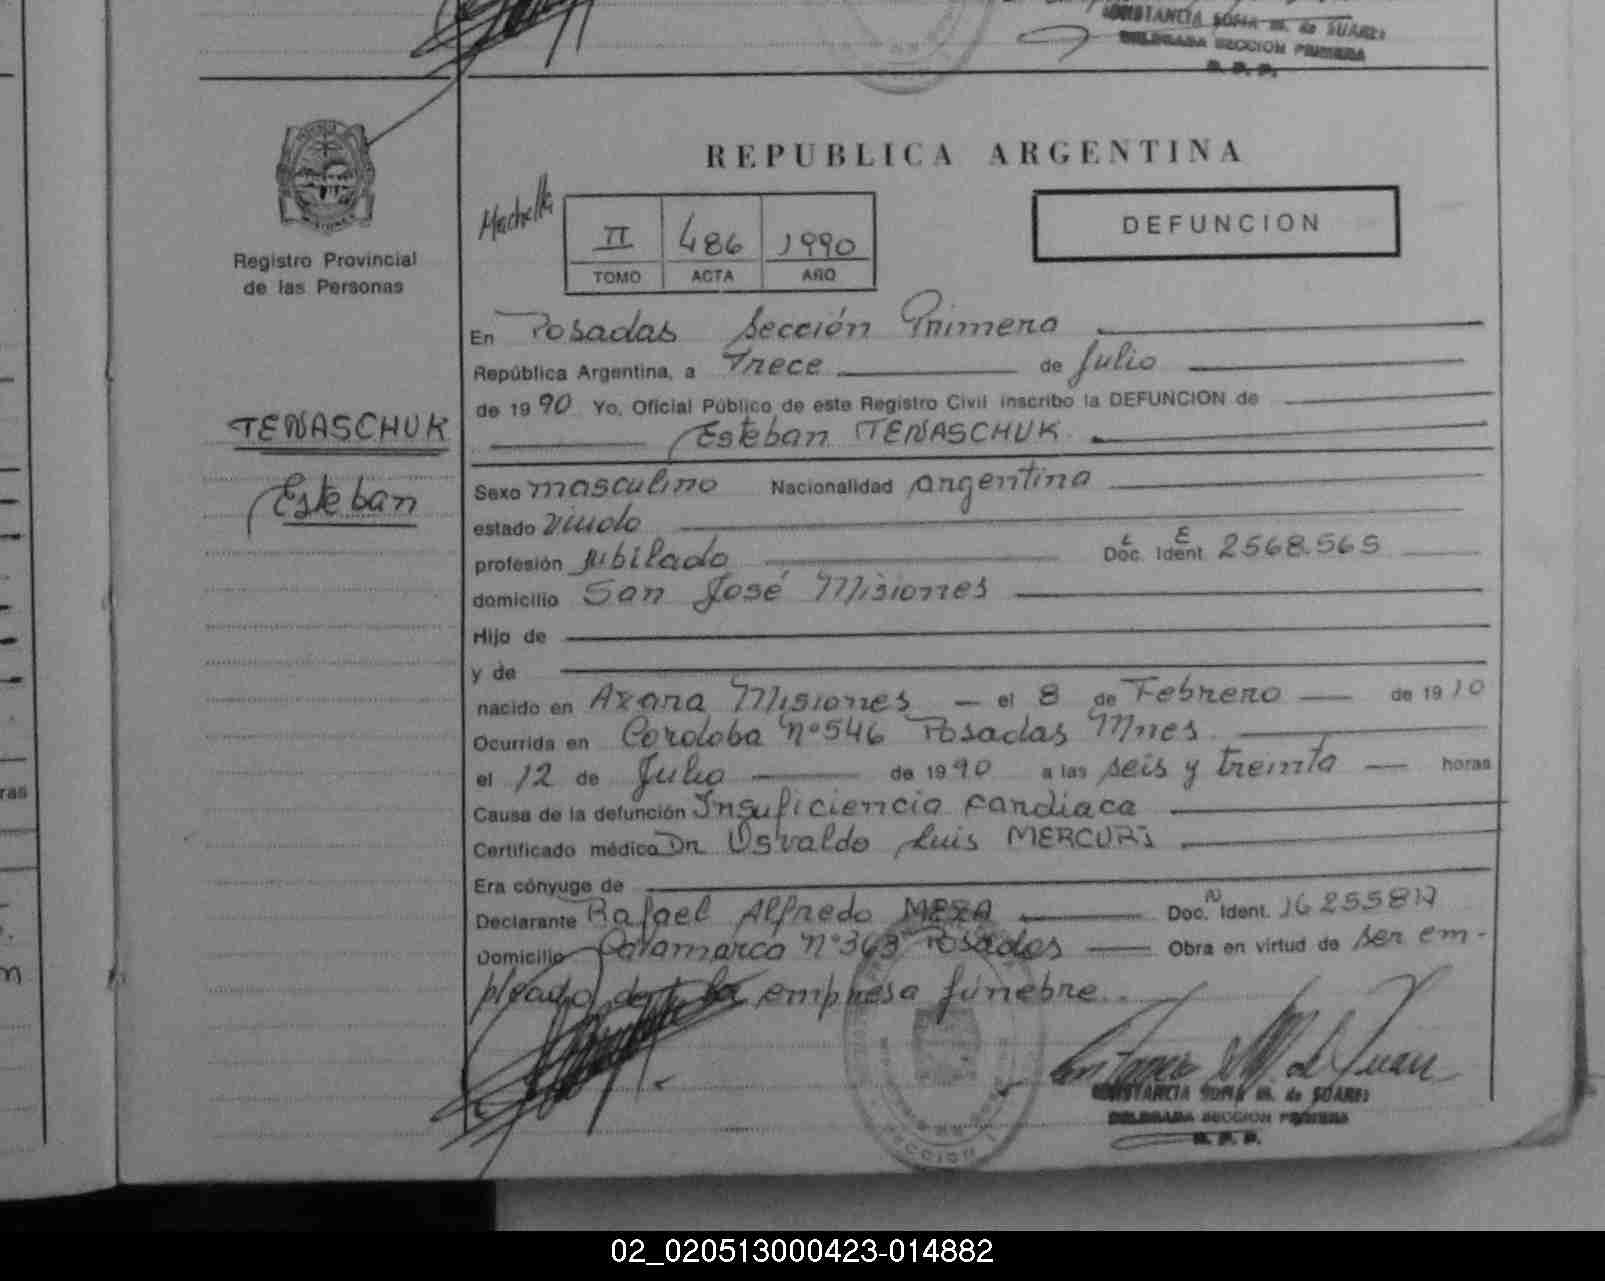 CONSTANCIA SOFIA M. de SUAREZ
DELEGADA SECCION PRIMERA
R. P. P.
Registro Provincial
de las Personas
TENASCHUK
Esteban
REPUBLICA ARGENTINA
II 486 1990
TOMO ACTA AÑO
DEFUNCION
En Posadas Sección Primera
República Argentina, a Trece de Julio
de 1990 Yo, Oficial Público de este Registro Civil inscribo la DEFUNCION de
Esteban TENASCHUK
Sexo masculino Nacionalidad argentina
estado viudo
profesión jubilado Doc. Ident. L E 2568.565
domicilio San José Misiones
Hijo de
y de
nacido en Azara Misiones el 8 de Febrero de 1910
Ocurrida en Cordoba Nº 546 Posadas Mnes
el 12 de Julio de 1990 a las seis y treinta horas
Causa de la defunción Insuficiencia Cardiaca
Certificado médico Dr Osvaldo Luis MERCURI
Era cónyuge de
Declarante Rafael Alfredo MEZA Doc. Ident.
Domicilio Catamarca Nº 363 Posadas Obra en virtud de ser em-
pleado de la empresa fúnebre.
CONSTANCIA SOFIA M. de SUAREZ
DELEGADA SECCION PRIMERA
R. P. P.
02_020513000423-014882